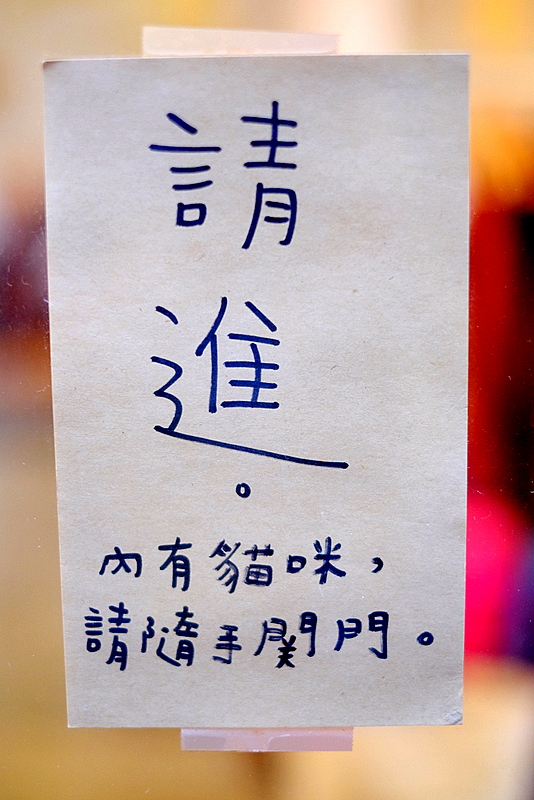 請
進
。
內有貓咪，
請隨手関門。